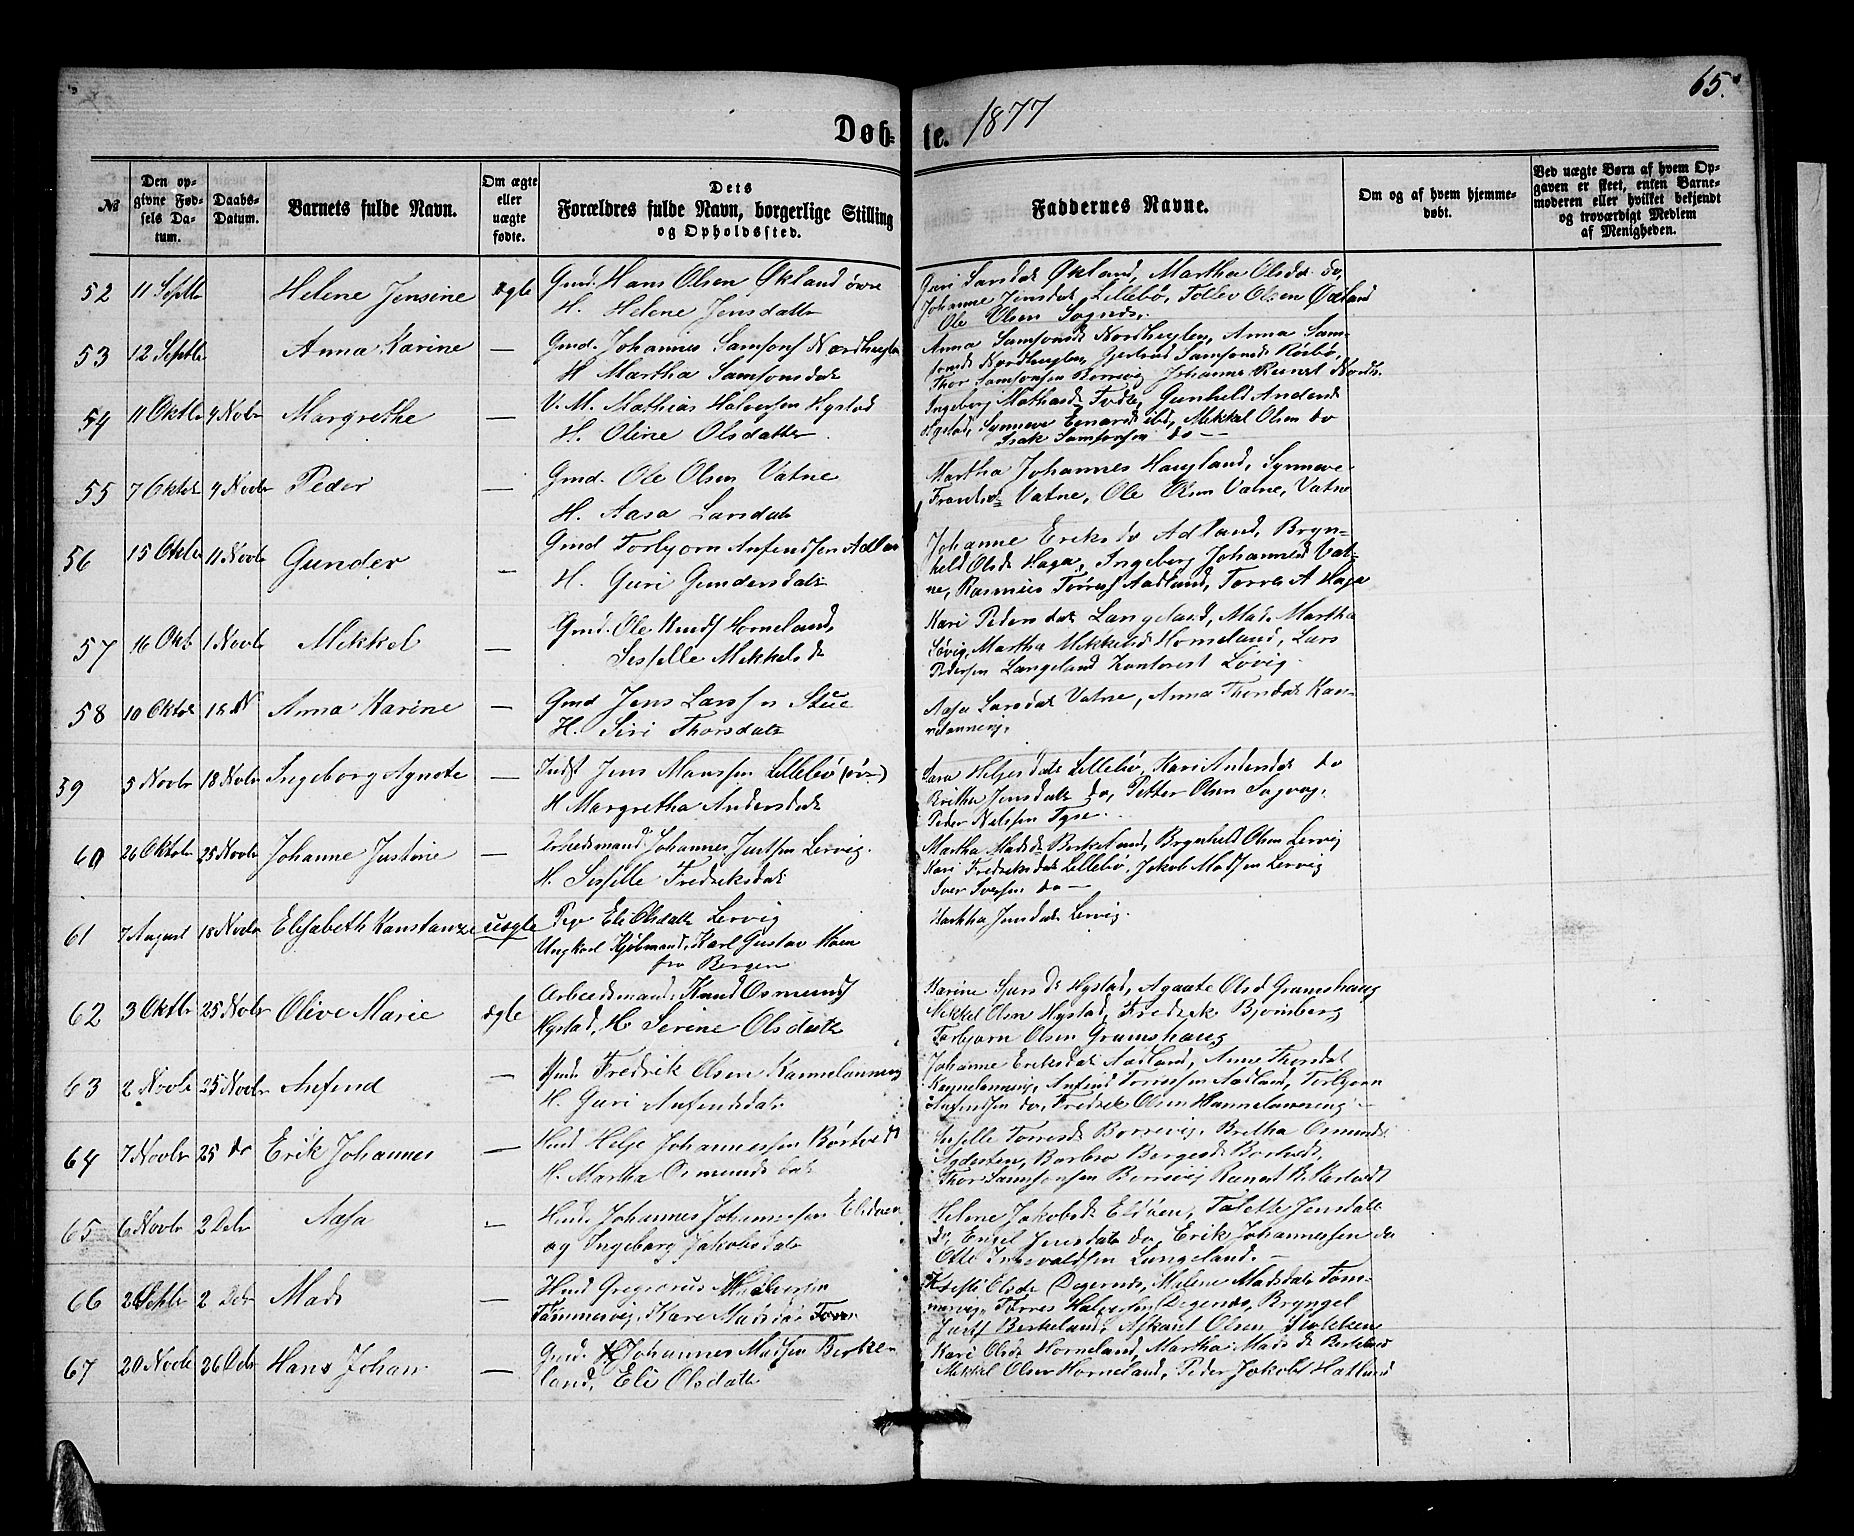 65.
Døb-te. 1877
№
Den op-
givne Fød-
sels Da-
tum.
Daabs-
Datum.
Barnets fulde Navn.
Om ægte
eller
uægte
fødte.
Dets
Forældres fulde Navn, borgerlige Stilling
og Opholdssted.
Faddernes Navne.
Om og af hvem hjemme-
døbt.
Ved uægte Børn af hvem Op-
gaven er skeet, enten Barne-
moderen eller hvilket bekjendt
og troværdigt Medlem
af Menigheden.
52 11 Septbr Helene Jensine ægte Gmd. Hans Olsen Økland øvre
H. Helene Jensdattr
Guri Larsdat Økland, Martha Olsdat do,
Johanne Jensdat Lillebø, Tollev Olsen Økland
Ole Olsen
53 12 Septbr Anna Karine — Gmd. Johannes Samsons Nordhuglen
H Martha Samsonsdat
Anna Samsonsd Nordhuglen, Anna Sam-
sonsd Nordhuglen, Gjertrud Samsonsd
Thor Samsonsen Borrevig Johannes
54 11 Oktbr 4 Novbr Margrethe — V. M. Mathias Halversen Hystad
H. Oline Olsdatter
Ingeborg Gunhild Andersd
Hystad, Synneve Mikkel Olsen do
Isak Samsonsen do —
55 7 Oktbr 4 Novbr Peder — Gmd. Ole Olsen Vatne
H. Aasa Larsdat
Martha Johannes Haugland, Synneve
Vatne, Ole Olsen Vatne, Vatne
56 15 Oktbr 11 Novbr Gunder — Gmd Torbjørn Anfendsen Adlan
H. Guri Gundersdat
Johanne Eriksd Adland, Bryn-
hild Olsd Haga, Ingeborg Johannesd Vat-
ne, Rasmus Tørres Aadland, Torres A Haga
57 16 Okt 1 Novbr Mikkel — Gmd. Ole Knuds Horneland,
Sesselle Mikkelsd
Kari Pedersdat Langeland, Mad. Martha
Løvig, Martha Mikkelsd Horneland, Lars
Pedersen Langeland Kontorist Løvig
58 10 Oktbr 18 N Anna Karine — Gmd Jens Larssen Stue
H. Siri Thorsdatr
Aasa Larsdat Vatne, Anna Thorsdat Kan-
59 5 Novbr 18 Novbr Ingeborg Agnete — Indst Jens Manssen Lillebø (øv)
H Margretha Andersdat
Sara Helgesdat Lillebø, Kari Andersdat do
Britha Jensdat do, Petter Olsen Sagvag,
Peder Nelssen Tyse
60 26 Oktobr 25 Novbr Johanne Justine — Arbeidsmand Johannes Justsen Lervig.
H. Sesselle Fredriksdat
Martha Madsd Birkeland, Brynhild Olsen Lervig
Kari Fredriksdat Lillebø, Jakob Madsen Lervig
Iver Iversen do —
61 7 August 18 Novbr Elisabeth Konstanze uægte Pige Eli Olsdattr Lervig
Ungkarl Kjøbmand, Karl Gustav
fra Bergen
Martha Jensdat Lervig.
62 3 Oktbr 25 Novbr Olive Marie ægte Arbeidsmand, Knud Osmunds
Hystad, H. Serine Olsdattr
Karine Hystad, Agaate Olsd Gramshaug
Mikkel Olsen Hystad, Fredrik Bjornberg
Torbjørn Olsen Gramshaug
63 2 Novbr 25 Novbr Anfend — Fredrik Olsen Kannelønning
H. Guri Anfendsdatr
Johanne Eriksdat Aadland, Anne Thorsdat
Kannelønning, Anfend Torressen Aadland, Torbjørn
Anfendsen do, Fredrik Olsen Kannelønning
64 7 Novbr 25 do Erik Johannes — Helje Johannessen Børtvedt
H. Martha Osmundsdat
Sesselle Torresd Borrevig, Bretha Osmunds
Agdesten, Barbro Borgesd Bortvedt,
Thor Samsonsen Borrevig
65 6 Novbr 2 Debr Aasa — Johannes Johannessen Eldøen
og Ingeborg Jakobsdatr
Helene Jakobsd Eldøen, Talette Jensdatt
do, Engel Jensdatr do, Erik Johannessen do
Langeland. —
66 2 Debr Mads — Gregorius
Tømmervig, Kari Madsdatr
Olsdr Degernes, Malene Madsdatr Tøm-
mervig, Tørres Halversen Degernes, Bryngel
Justs Birkeland, Askaut Olsen
67 20 Novbr 26 Debr Hans Johan — Gmd. Johannes Madsen Birke-
land, Eli Olsdatr
Kari Olsdr Horneland, Martha Madsd Birkeland
Mikkel Olsen Horneland, Peder Jakobs Hatland